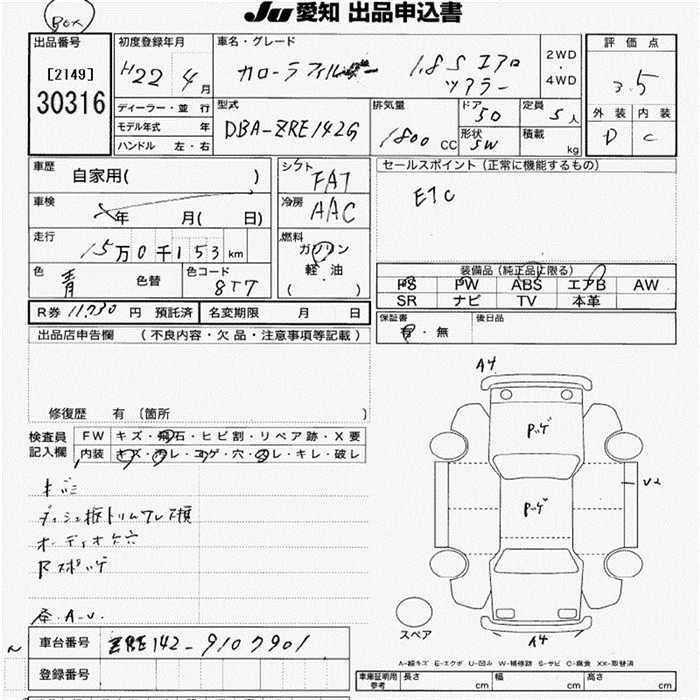 BOX
JU 愛知 出品申込書
出品番号 初度登録年月 車名・グレード 評価点
[2149]
30316
H22年 4月
カローラフィルダー 1.8S エアロ
ツアラー
2WD
・
4WD
3.5
ディーラー・並行 型式 排気量 ドア 定員 外装 内装
モデル年式 年 DBA-ZRE142G 1800 CC 5D 5人 D C
ハンドル 左・右 形状 SW 積載 kg
車歴 自家用( ) シフト FAT セールスポイント(正常に機能するもの)
車検 年 月( 日) 冷房 AAC ETC
走行 15万0千153km 燃料 ガソリン
軽油
( )
色 青 色替 色コード 8T7
装備品(純正品に限る)
PS PW ABS エアB AW
SR ナビ TV 本革
R券 11,730円 預託済 名変期限 月 日 保証書 有・無 後日品
出品店申告欄 (不良内容・欠品・注意事項等記載)
修復歴 有 (箇所 )
検査員
記入欄
FW キズ・飛石・ヒビ割・リペア跡・X要
内装 キズ・汚レ・コゲ・穴・スレ・キレ・破レ
キバミ
オーディオケ穴
A4
Pッゲ
Pッゲ
U2
A4
スペア
各.A-U.
車台番号 ZRE142-9107901
登録番号
A-線キズ E-エクボ U-凹み W-補修跡 S-サビ C-腐食 XX-取替済
車庫証明用
参考
長さ cm 幅 cm 高さ cm